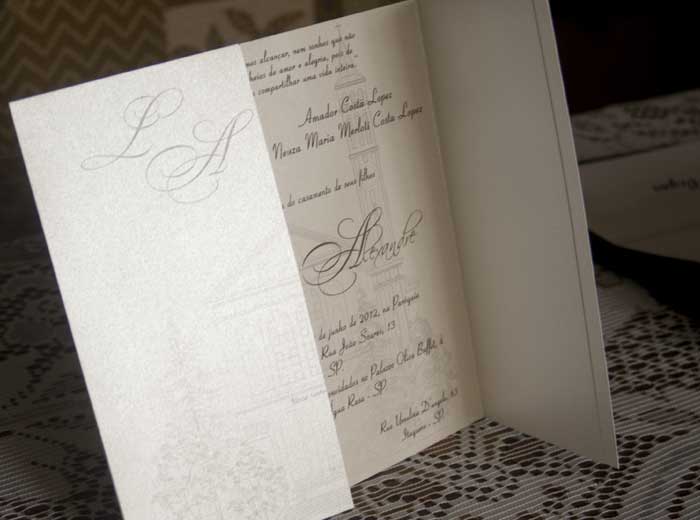 L A
mos alcançar, nem sonhos que não
cheios de amor e alegria, pois de
compartilhar uma vida inteira.
Amador Costa Lopez
Neuza Maria Merloti Costa Lopez
do casamento de seus filhos
Alexandre
de junho de 2012, na Paróquia
Rua João Soares, 13
SP.
convidados no Palazzo Oliva Buffet, à
Água Rasa - SP.
Rua Ursulina D'angelo, 83
Itaquera - SP.